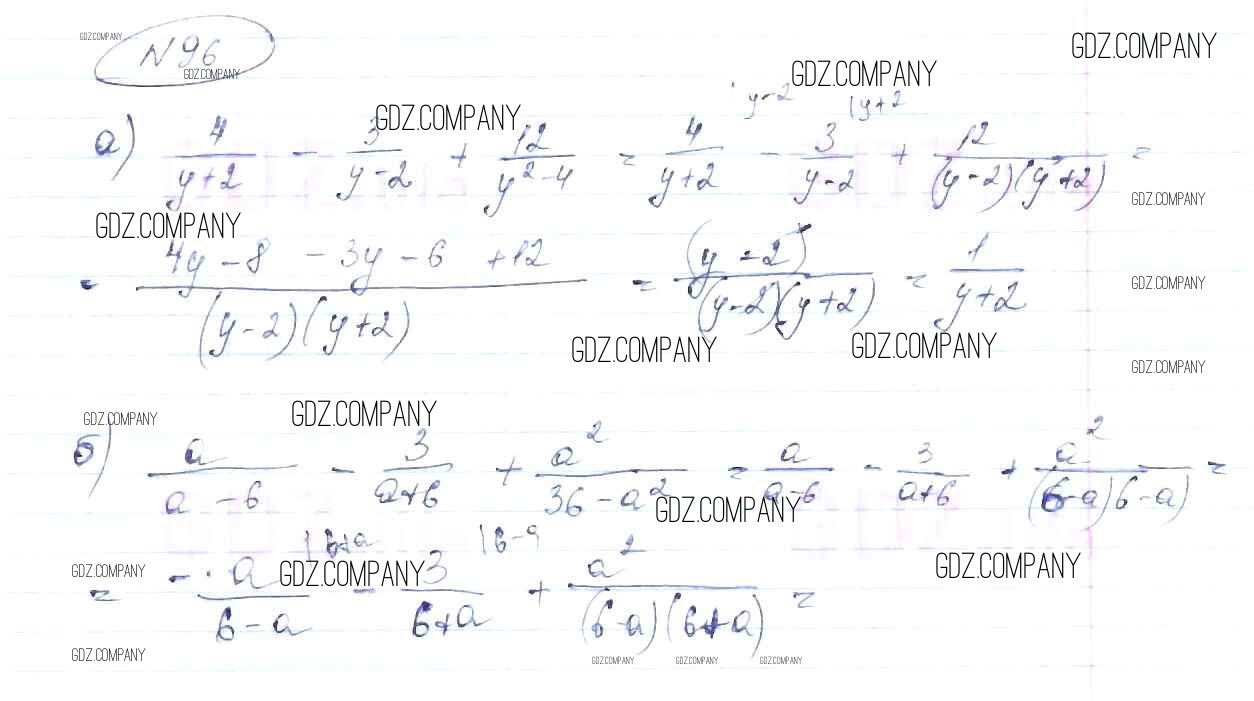 GDZ.COMPANY
N 96
GDZ.COMPANY
GDZ.COMPANY
GDZ.COMPANY
GDZ.COMPANY
| y-2 | y+2
а) 4/(y+2) - 3/(y-2) + 12/(y²-4) = 4/(y+2) - 3/(y-2) + 12/((y-2)(y+2)) =
GDZ.COMPANY
GDZ.COMPANY
= (4y-8 -3y-6 +12)/((y-2)(y+2)) = (y-2)/((y-2)(y+2)) = 1/(y+2)
GDZ.COMPANY
GDZ.COMPANY
GDZ.COMPANY
GDZ.COMPANY
GDZ.COMPANY
GDZ.COMPANY
б) a/(a-6) - 3/(a+6) + a²/(36-a²) = a/(a-6) - 3/(a+6) + a²/((6-a)6-a) =
GDZ.COMPANY
| 6+a | 6-a
= - a/(6-a) - 3/(6+a) + a²/((6-a)(6+a)) =
GDZ.COMPANY
GDZ.COMPANY
GDZ.COMPANY
GDZ.COMPANY
GDZ.COMPANY GDZ.COMPANY GDZ.COMPANY